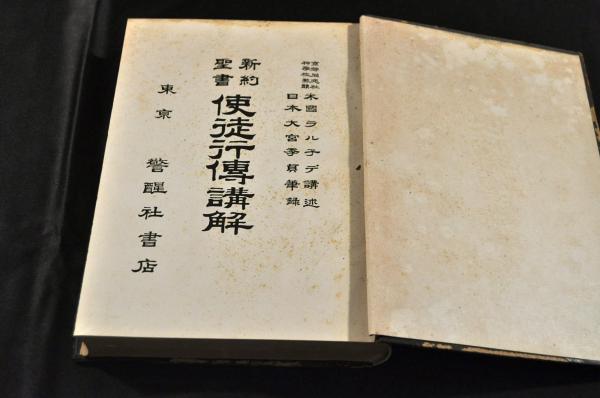 京都同志社
神學校教頭
米國ラル子デ講述
日本大宮季貞筆錄
新約
聖書
使徒行傳講解
東京
警醒社書店